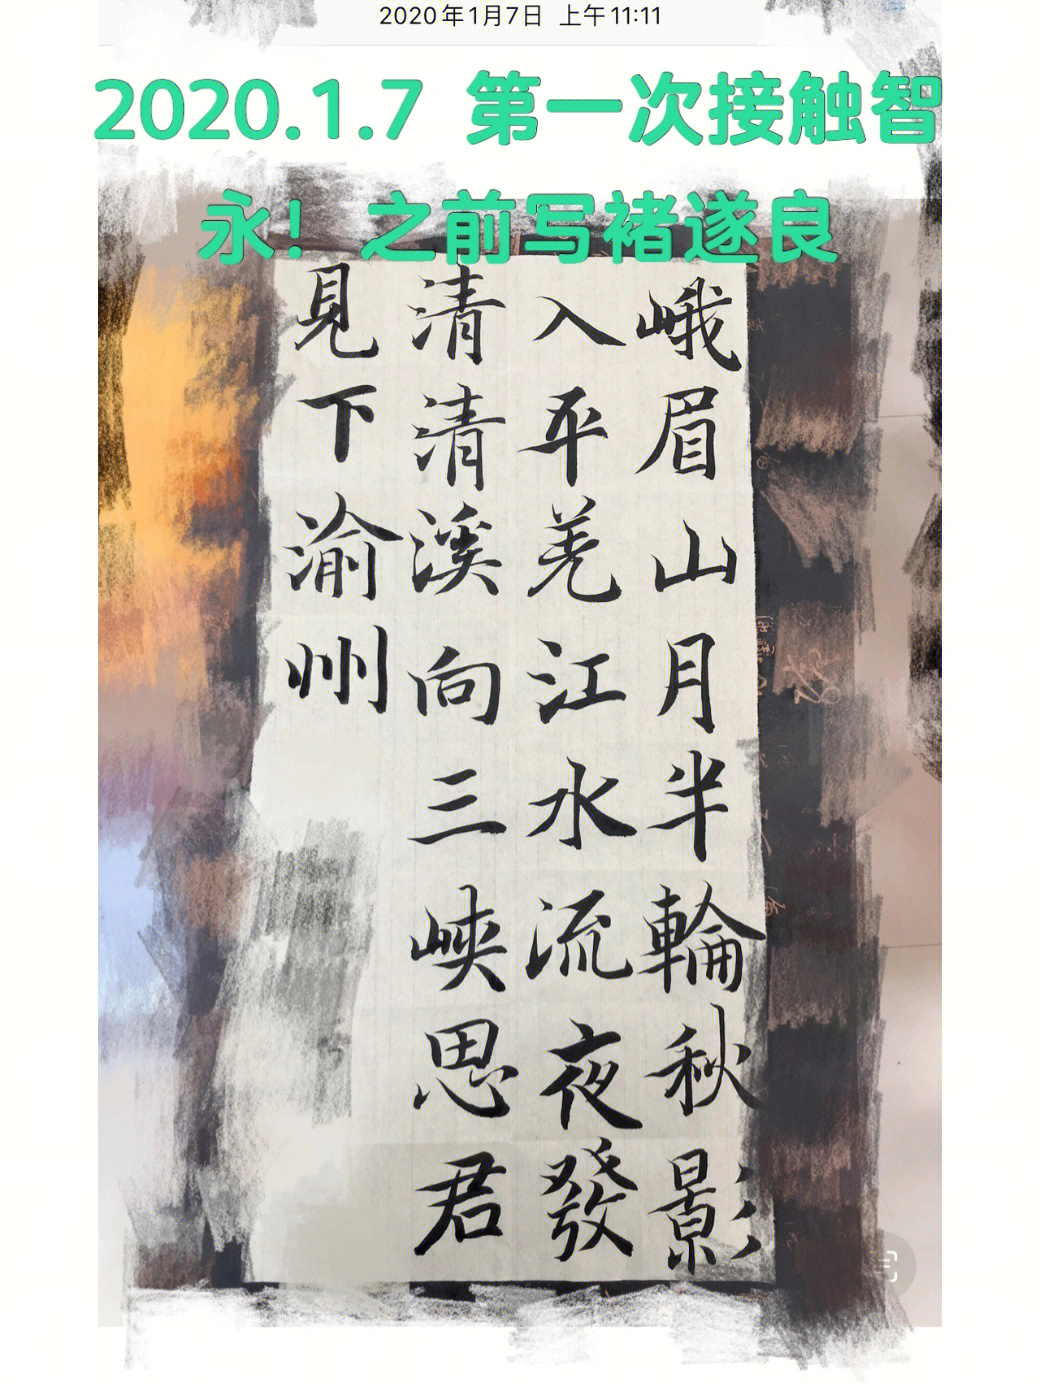 2020年1月7日 上午11:11
2020.1.7 第一次接触智
永！之前写褚遂良
峨眉山月半輪秋影
入平羌江水流夜發
清清溪向三峽思君
見下渝州